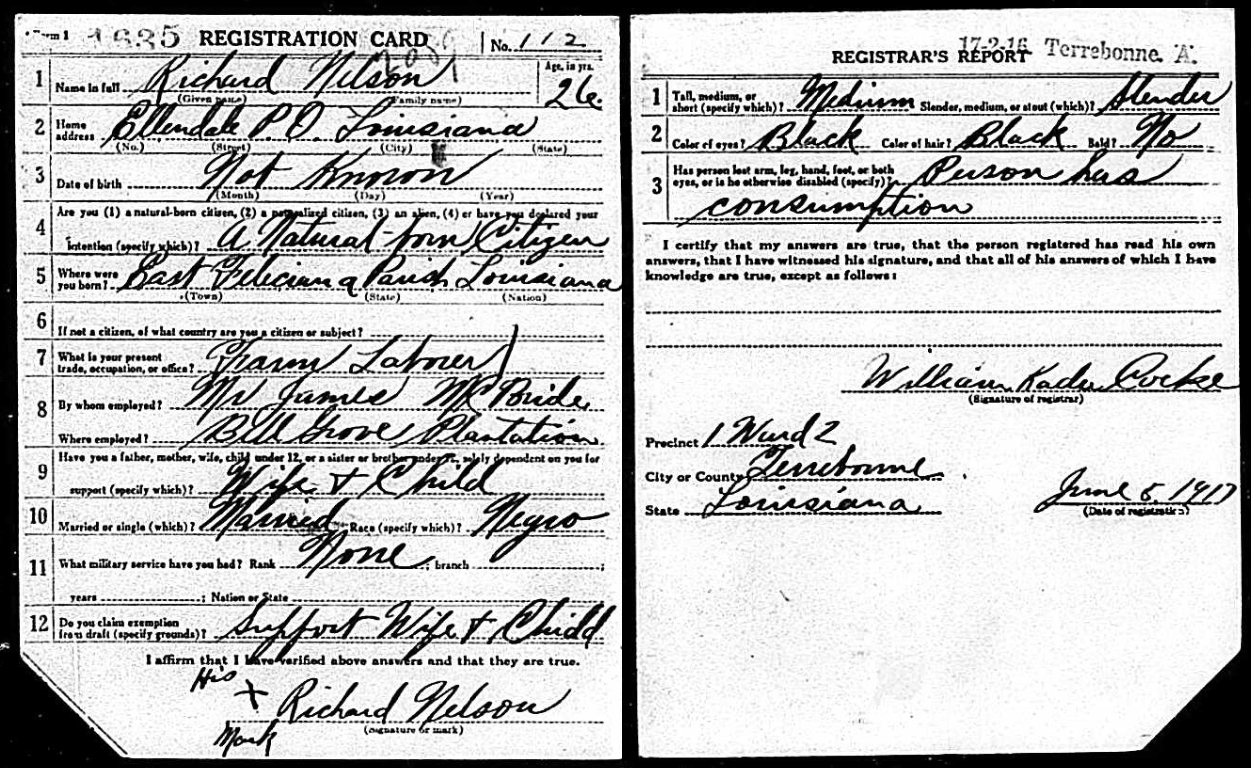 Form 1 1635 REGISTRATION CARD No. 112
1 Name in full Richard Nelson Age, in yrs. 26
(Given name) (Family name)
2 Home address Ellendale P O Louisiana
(No.) (Street) (City) (State)
3 Date of birth Not Known
(Month) (Day) (Year)
4 Are you (1) a natural-born citizen, (2) a naturalized citizen, (3) an alien, (4) or have you declared your
intention (specify which)? A Natural-born Citizen
5 Where were you born? East Feliciana Parish Louisiana
(Town) (State) (Nation)
6 If not a citizen, of what country are you a citizen or subject?
7 What is your present trade, occupation, or office? Farm Laborer
8 By whom employed? Mr James McBride
Where employed? Bell Grove Plantation
9 Have you a father, mother, wife, child under 12, or a sister or brother under 12, solely dependent on you for
support (specify which)? Wife + Child
10 Married or single (which)? Married Race (specify which)? Negro
11 What military service have you had? Rank None ; branch ;
years ; Nation or State
12 Do you claim exemption from draft (specify grounds)? Support Wife + Child
I affirm that I have verified above answers and that they are true.
His
+ Richard Nelson
Mark (signature or mark)
17-2-16 Terrebonne. A.
REGISTRAR'S REPORT
1 Tall, medium, or short (specify which)? Medium Slender, medium, or stout (which)? Slender
2 Color of eyes? Black Color of hair? Black Bald? No
3 Has person lost arm, leg, hand, foot, or both
eyes, or is he otherwise disabled (specify)? Person has
consumption
I certify that my answers are true, that the person registered has read his own
answers, that I have witnessed his signature, and that all of his answers of which I have
knowledge are true, except as follows:
William Cocke
(Signature of registrar)
Precinct 1 Ward 2
City or County Terrebonne
State Louisiana June 5, 1917
(Date of registration)